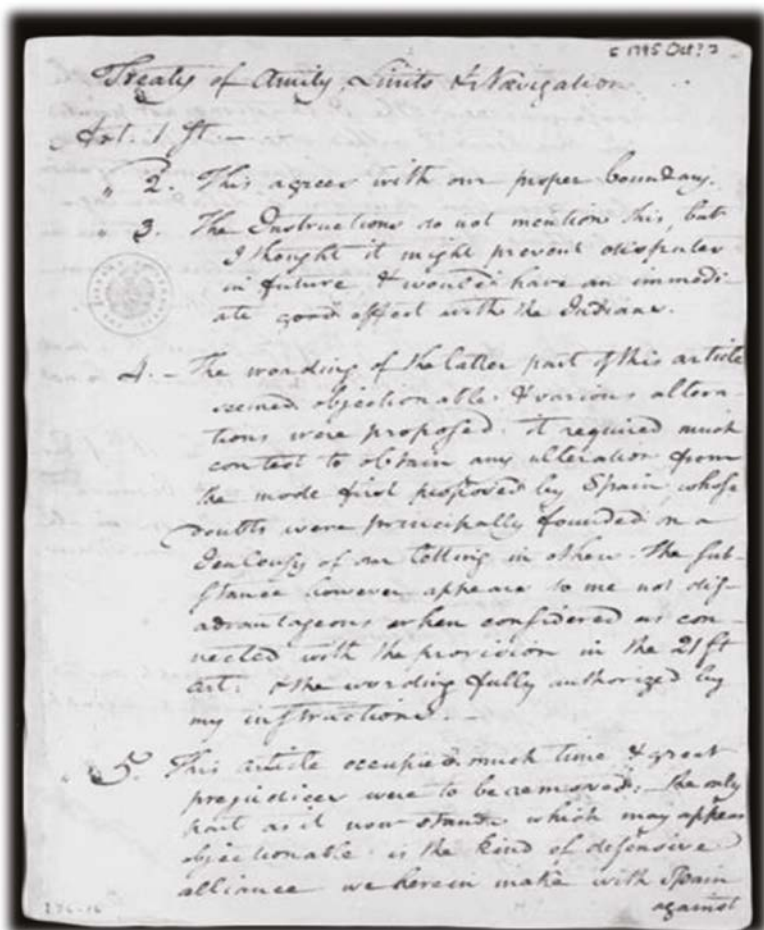 c 1795 Oct? ?
Treaty of Amity, Limits & Navigation
Art. 1st. —
" 2. This agrees with our proper boundary.
" 3. The Instructions do not mention this, but
I thought it might prevent disputes
in future & would have an immedi-
ate good effect with the Indians.
4. - The wording of the latter part of this article
seemed objectionable & various altera-
tions were proposed. it required much
contest to obtain any alteration from
the mode first proposed by Spain, whose
doubts were principally founded on a
Jealousy of our letting in others. The sub-
stance however appears to me not dis-
advantageous when considered as con-
nected with the provision in the 21st
art: & the wording fully authorized by
my instructions. -
" 5. This article occupied much time & great
prejudices were to be removed; the only
part as it now stands which may appear
objectionable is the kind of defensive
alliance we herein make with Spain
against